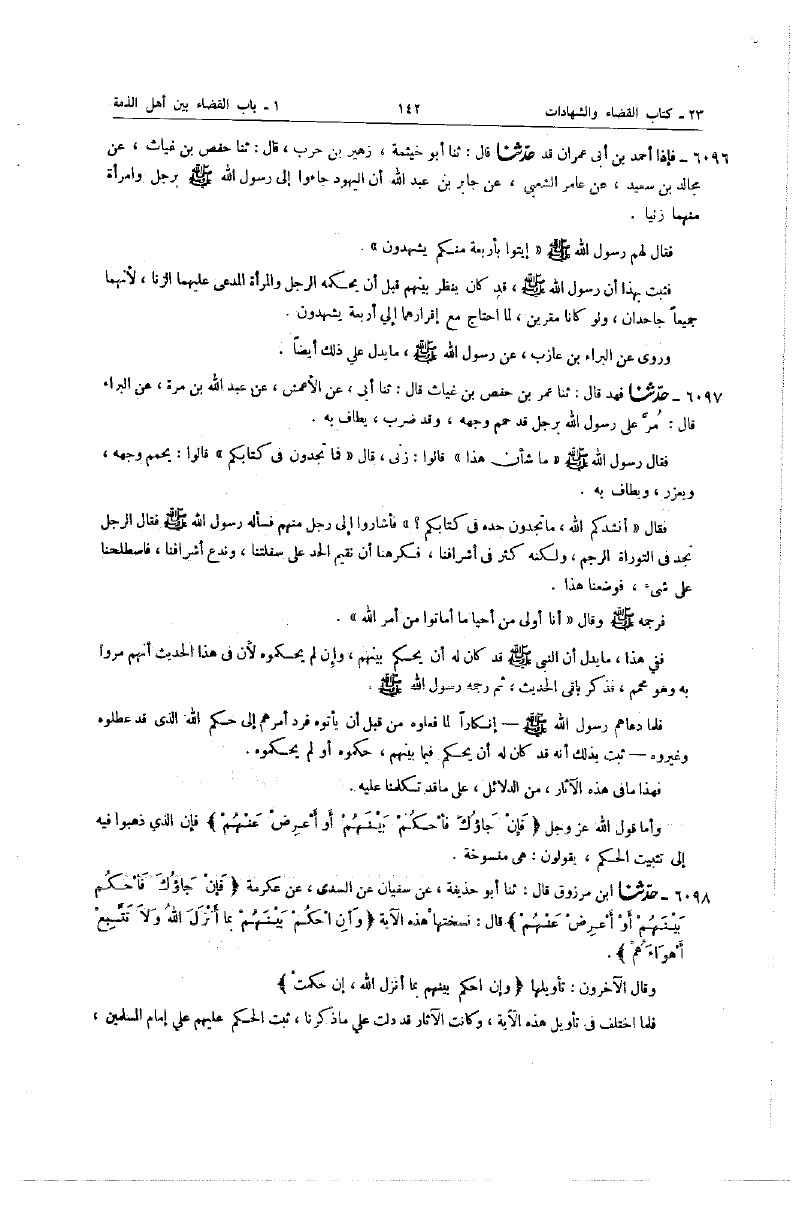 ٢٣ ـ كتاب القضاء والشهادات ١٤٢ ١ ـ باب القضاء بين أهل الذمة
٦٠٩٦ ـ فإذا أحمد بن أبى عمران قد حدّثنا قال : ثنا أبو خيثمة ، زهير بن حرب ، قال : ثنا حفص بن غياث ، عن
مجالد بن سعيد ، عن عامر الشعبي ، عن جابر بن عبد الله أن اليهود جاءوا إلى رسول الله ﷺ برجل وامرأة
منهما زنيا .
فقال لهم رسول الله ﷺ « إيتوا بأربعة منكم يشهدون » .
فثبت بهذا أن رسول الله ﷺ ، قد كان ينظر بينهم قبل أن يحكمه الرجل والمرأة المدعى عليهما الزنا ، لأنهما
جميعاً جاحدان ، ولو كانا مقرين ، لما احتاج مع إقرارهما إلي أربعة يشهدون .
وروى عن البراء بن عازب ، عن رسول الله ﷺ ، مايدل علي ذلك أيضاً .
٦٠٩٧ ـ حدّثنا فهد قال : ثنا عمر بن حفص بن غياث قال : ثنا أبى ، عن الأعمش ، عن عبد الله بن مرة ، عن البراء
قال : مُرَّ على رسول الله برجل قد حمم وجهه ، وقد ضرب ، يطاف به .
فقال رسول الله ﷺ « ما شأن هذا » قالوا : زنى ، قال « فما تجدون فى كتابكم » قالوا : يحمم وجهه ،
ويعزر ، ويطاف به .
فقال « أنشدكم الله ، ماتجدون حده فى كتابكم ؟ » فأشاروا إلى رجل منهم فسأله رسول الله ﷺ فقال الرجل
نجد فى التوراة الرجم ، ولكنه كثر فى أشرافنا ، فكرهنا أن نقيم الحد على سفلتنا ، وندع أشرافنا ، فاسطلحنا
على شىء ، فوضعنا هذا .
فرجمه ﷺ وقال « أنا أولى من أحيا ما أماتوا من أمر الله » .
ففي هذا ، مايدل أن النبي ﷺ قد كان له أن يحكم بينهم ، وإن لم يحكموه لأن فى هذا الحديث أنهم مروا
به وهو محمم ، فذكر باقى الحديث ، ثم رجمه رسول الله ﷺ .
فلما دعاهم رسول الله ﷺ — إنكاراً لما فعلوه من قبل أن يأتوه فرد أمرهم إلى حكم الله الذى قد عطلوه
وغيروه — ثبت بذلك أنه قد كان له أن يحكم فيما بينهم ، حكموه أو لم يحكموه .
فهذا مافى هذه الآثار ، من الدلائل ، على ماقد تكلمنا عليه .
وأما قول الله عز وجل ﴿ فَإِنْ جَاؤُكَ فَاحْكُمْ بَيْنَهُمْ أَو أَعْرِضْ عَنْهُمْ ﴾ فإن الذي ذهبوا فيه
إلى تثبيت الحكم ، يقولون : هى منسوخة .
٦٠٩٨ ـ حدّثنا ابن مرزوق قال : ثنا أبو حذيفة ، عن سفيان عن السدى ، عن عكرمة ﴿ فَإِنْ جَاؤُكَ فَاحْكُم
بَيْنَهُمْ أَوْ أَعْرِضْ عَنْهُمْ ﴾ قال : نسختها هذه الآية ﴿ وَأَنِ احْكُمْ بَيْنَهُمْ بِمَا أَنْزَلَ اللهُ وَلَا تَتَّبِعْ
أَهْوَاءَهُمْ ﴾ .
وقال الآخرون : تأويلها ﴿ وإن احكم بينهم بما أنزل الله ، إن حكمت ﴾
فلما اختلف فى تأويل هذه الآية ، وكانت الآثار قد دلت علي ماذكرنا ، ثبت الحكم عليهم علي إمام المسلمين ،